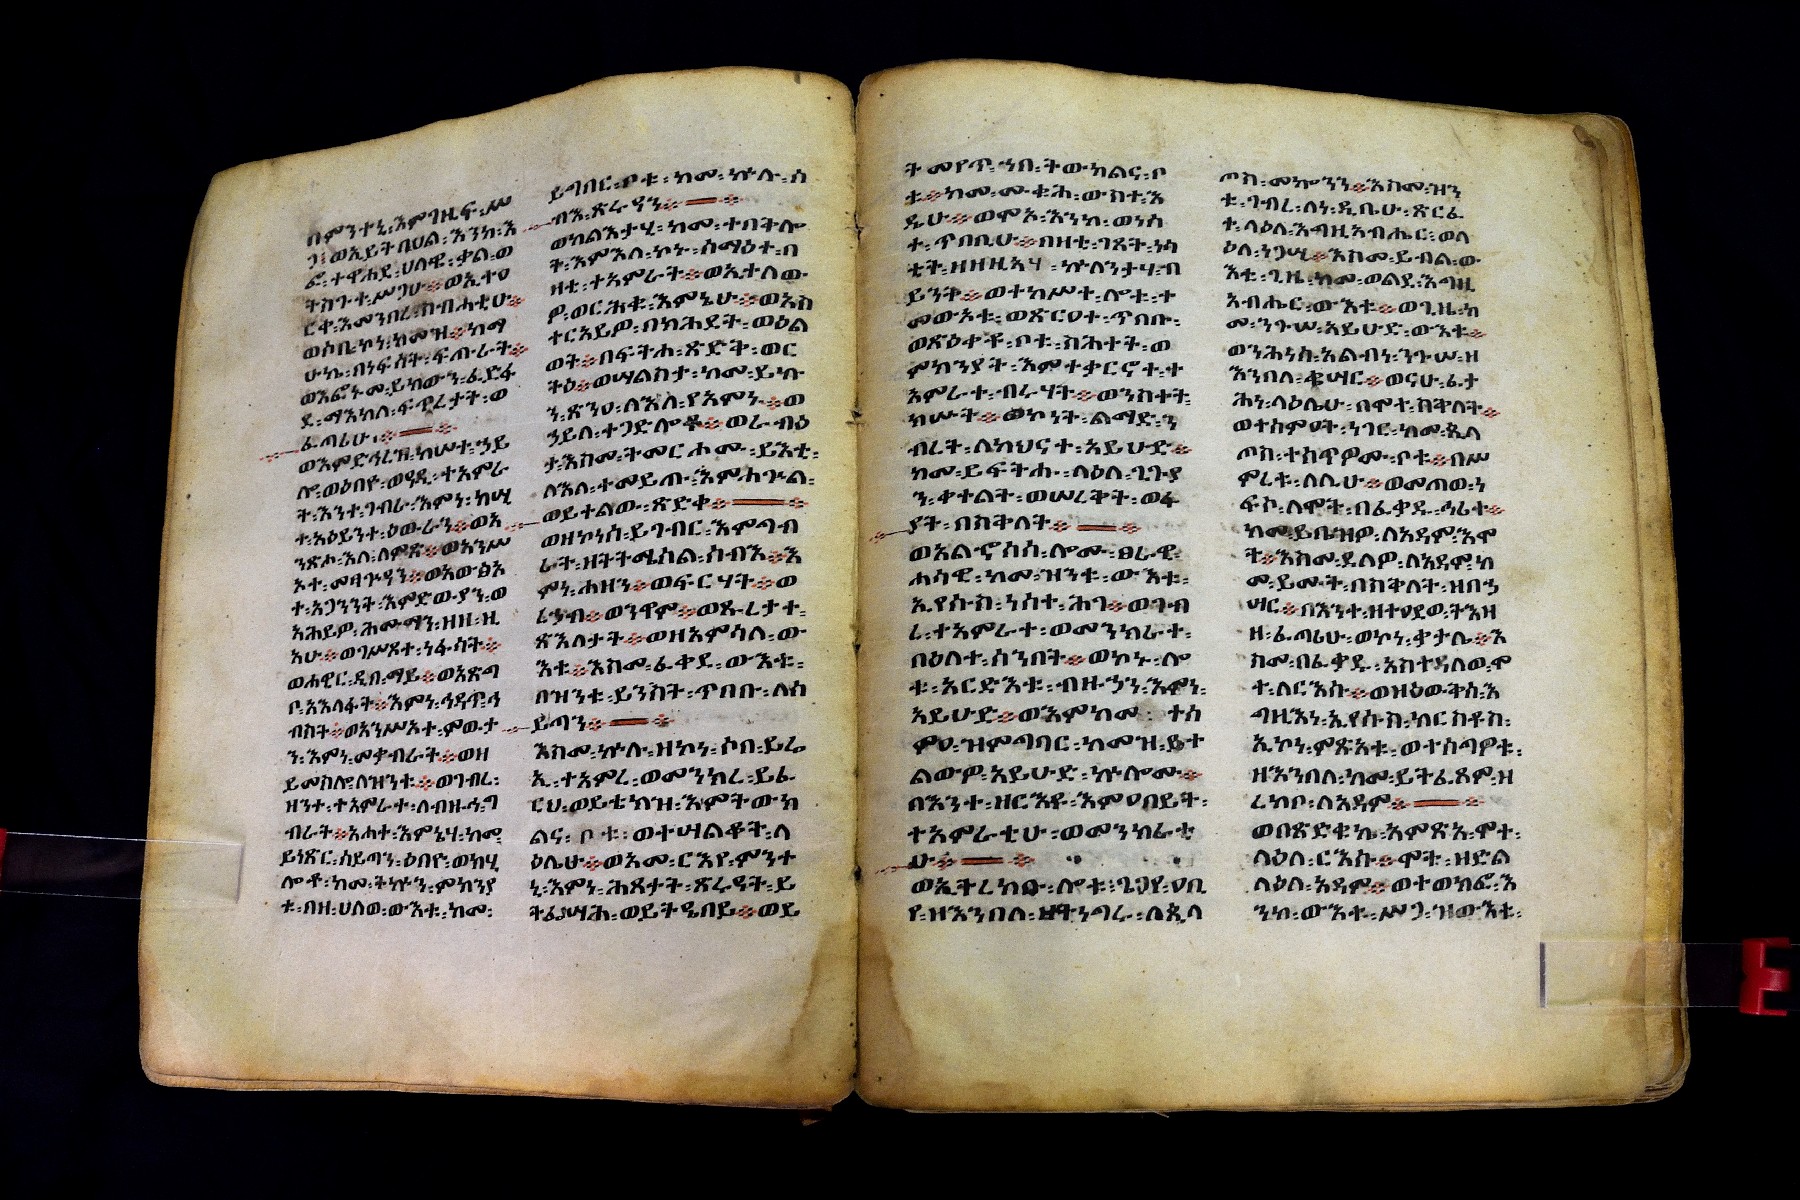 በምንተኒ፡እምገዚፍ፡ሥ
ጋ፡ወእይትበሀል፡እንከ፡እ
ፎ፡ተዋሐደ፡ሀለዊ፡ቃል፡ወ
ርተ፡እመንበረ፡ስብሐቲሁ፨
ወሶቤ፡ኮነ፡ከመዝ፨ከማ
ሁኬ፡በነፍስት፡ፍጡራት፨
ወእፎኑመ፡ይከውን፡ፈድፋ
ደ፡ማእከለ፡ፍጥረታት፡ወ
ፈጣሪሁ፡፨
ት፡እንተ፡ገብራ፡እምነ፡ከሢ
ተ፡አዕይንተ፡ዕውራን፨ወአ
ንጽሖ፡እለ፡ለምጽ፨ወአንሥ
ተ፡አጋንንት፡እምድውያን፡ወ
አሕይዎ፡ሕሙማን፡ዘዘ፡ዚ
አሁ፨ወገሥጾተ፡ነፋሳት፨
ወሐዊር፡ዲበ፡ማይ፨ወአጽጋ
ቦ፡አእላፋት፨እምነ፡ኅዳጥ፡ኅ
ብስት፨ወአንሥአተ፡ምውታ
ን፡እምነ፡መቃብራት፨ወዘ
ይመስሎ፡ለዝንተ፨ወገብረ፡
ዘንተ፡ተአምራተ፡ለብዙኅ፡ግ
ብራት፨አሐተ፡እምኔሃ፡ከመ
ይነጽር፡ሰይጣን፡ዕበዮ፡ወከሃ
ሎቶ፡ከመ፡ትኩን፡ምክንያ
ተ፡በዘ፡ሀለወ፡ውእቱ፡ከመ፡
ይግበር፡ቦቱ፡ከመ፡ኵሉ፡ሰ
ብእ፡ጽራዳን፨
ወከልእታሂ፡ከመ፡ተበትሎ
ት፡እምእለ፡ኮኑ፡ሰማዕተ፡በ
ዘቲ፡ተአምራት፨ወእተለው
ዎ፡ወርሕቁ፡እምኔሁ፨ወእስ
ተርአይዎ፡በክሕደት፡ወዕል
ወት፨በፍትሐ፡ጽድት፡ወር
ትዕ፨ወሣልስታ፡ከመ፡ይኩ
ን፡ጽንዐ፡ለእለ፡የአምኑ፨ወ
ኃይለ፡ተጋድሎቶ፨ወራብዕ
ታ፡እስመ፡ትመርሐሙ፡ይእቲ፡
ለእለ፡ተመይጡ፡እምሐጕል፡
ወይተልው፡ጽድቀ፨
ወዘኮነሰ፡ይገብር፡እምግብ
ራት፡ዘትትሜሰል፡ስብእ፨እ
ምነ፡ሐዘን፨ወፍርሃት፨ወ
ረኃብ፨ወንዋም፨ወጹረታተ፡
ጽእለታት፨ወዘእምሳለ፡ው
እቱ፨እስመ፡ፈቀደ፡ውእቱ፡
በዝንቱ፡ይንሰት፡ጥበቡ፡ለሰ
ይጣን፨
እስመ፡ኵሉ፡ዘኮነ፡ሶበ፡ይሬ
ኢ፡ተአምረ፡ወመንክረ፡ይፈ
ርህ፡ወይቲክዝ፡እምትውክ
ልና፡ቦቱ፡ወተሣልቆት፡ለ
ዕሌሁ፨ወእመ፡ርእየ፡ምንተ
ኒ፡እምነ፡ሕጸታት፡ጽራዳት፡ይ
ትፌሣሕ፡ወይትዔበይ፨ወይ
ትመየጥ፡ኀበ፡ትውክልና፡ቦ
ቱ፨ከመ፡ሙቁሕ፡ውስተ፡እ
ዲሁ፨ወሞኦ፡እንከ፡ወነስ
ተ፡ጥበቢሁ፨በዘቲ፡ገጸት፡ነሳ
ይንት፨ወተከሥተ፡ሎቱ፡ተ
መውኦቱ፡ወጽርዐተ፡ጥበቡ፡
ወጽዕቀቶ፡ቦቱ፡ስሕተት፡ወ
ምክንያት፡እምተቃርኖት፡ተ
አምራተ፡ብራሃት፨ወንስተት፡
ክሡት፨ወኮነት፡ልማድ፡ን
ብረት፡ለክህናተ፡አይሁድ፨
ከመ፡ይፍትሑ፡ላዕለ፡ጊጉያ
ን፡ቀተልት፡ወሠረቅት፡ወፋ
ያት፡በስቅለት፨
ወአልቦሰሰ፡ሎሙ፡ፀራዊ፡
ሐሳዊ፡ከመ፡ዝንቱ፡ውእቱ፡
ኢየሱስ፡ነስተ፡ሕገ፨ወገብ
ረ፡ተአምራተ፡ወመንክራተ፡
በዕለተ፡ሰንበት፨ወኮኑ፡ሎ
ቱ፡አርድእቱ፡ብዙኃን፡እምነ፡
አይሁድ፨ወእምከመ፡ተስ
ምዐ፡ዝምግባር፡ከመዝ፡ይተ
ልውዎ፡አይሁድ፡ኵሎሙ፨
በእንተ፡ዘርእዩ፡እምዐበይት፡
ተአምራቲሁ፡ወመንክራቲ
ሁ፨
ወኢትረክበ፡ሎቱ፡ጌጋየ፡ዐቢ
የ፡ዘእንበለ፡ዘትነግራ፡ለጲላ
ጦስ፡መኰንን፨እስመ፡ዝን
ቱ፡ገብረ፡ለነ፡ዲቤሁ፡ጽርፈ
ተ፡ላዕለ፡እግዚአብሔር፡ወላ
ዕለ፡ነጋሢ፨እስመ፡ይብል፡ው
እቱ፡ጊዜ፡ከመ፡ወልደ፡እግዚ
አብሔር፡ውእቱ፨ወጊዜ፡ከ
መ፡ንጉሠ፡አይሁድ፡ውእቱ፨
ወንሕነሰ፡አልብነ፡ንጉሠ፡ዘ
እንበለ፡ቄሣር፨ወናሁ፡ፈታ
ሕነ፡ላዕሌሁ፡በሞተ፡ስቅለት፨
ወተሰምዐት፡ነገር፡ከመ፡ጲላ
ጦስ፡ተስጥዎሙ፡ቦቱ፨በሥ
ምረቱ፡ለሊሁ፨ወመጠወ፡ነ
ፍሶ፡ለሞት፡በፈቃዱ፡ኅሪት፨
ከመ፡ይቤዝዎ፡ለአዳም፡እሞ
ት፨እስመ፡ይለዎ፡ለአዳም፡ከ
መ፡ይሙት፡በስቅለት፡ዘበኃ
ሣር፨በእንተ፡ዘተዐደወ፡ትእዘ
ዘ፡ፈጣሪሁ፡ወኮነ፡ቃታሌ፨እ
ስመ፡በፈቃዱ፡አስተዳለወ፡ሞ
ተ፡ለርእሱ፨ወዝዕውትሰ፡እ
ግዚእነ፡ኢየሱስ፡ክርስቶስ፡
ኢኮነ፡ምጽአቱ፡ወተሰጣዎቱ፡
ዘእንበለ፡ከመ፡ይትፈጸም፡ዘ
ረከቦ፡ለአዳም፨
ወበጽድቁኬ፡አምጽአ፡ሞተ፡
ላዕለ፡ርእሱ፨ሞት፡ዘድል
ላዕለ፡አዳም፨ወተወክፎ፡እ
ንከ፡ውእቱ፡ሥጋ፡ዝውእቱ፡